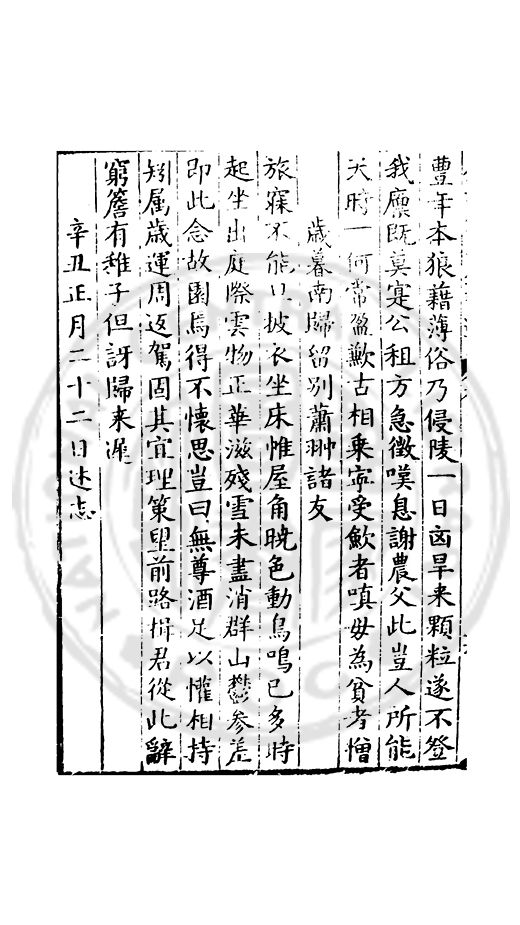 豐年本狼藉薄俗乃侵陵一日凶旱来顆粒遂不登
我廩既莫寔公租方急徵嘆息謝農父此豈人所能
天時一何常盈歉古相乗寕受歉者嗔毋為貧者憎
歳暮南歸留别蕭翀諸友
旅寐不能披衣坐床惟屋角晩色動鳥鳴已多時
起坐出庭際雲物正華滋殘雪未盡消群山鬱參差
即此念故園焉得不懷思豈曰無尊酒足以懽相持
矧属歳運周返駕固其宜理策望前路揖君從此辭
窮簷有稚子但訝歸来遲
辛丑正月二十二日述志